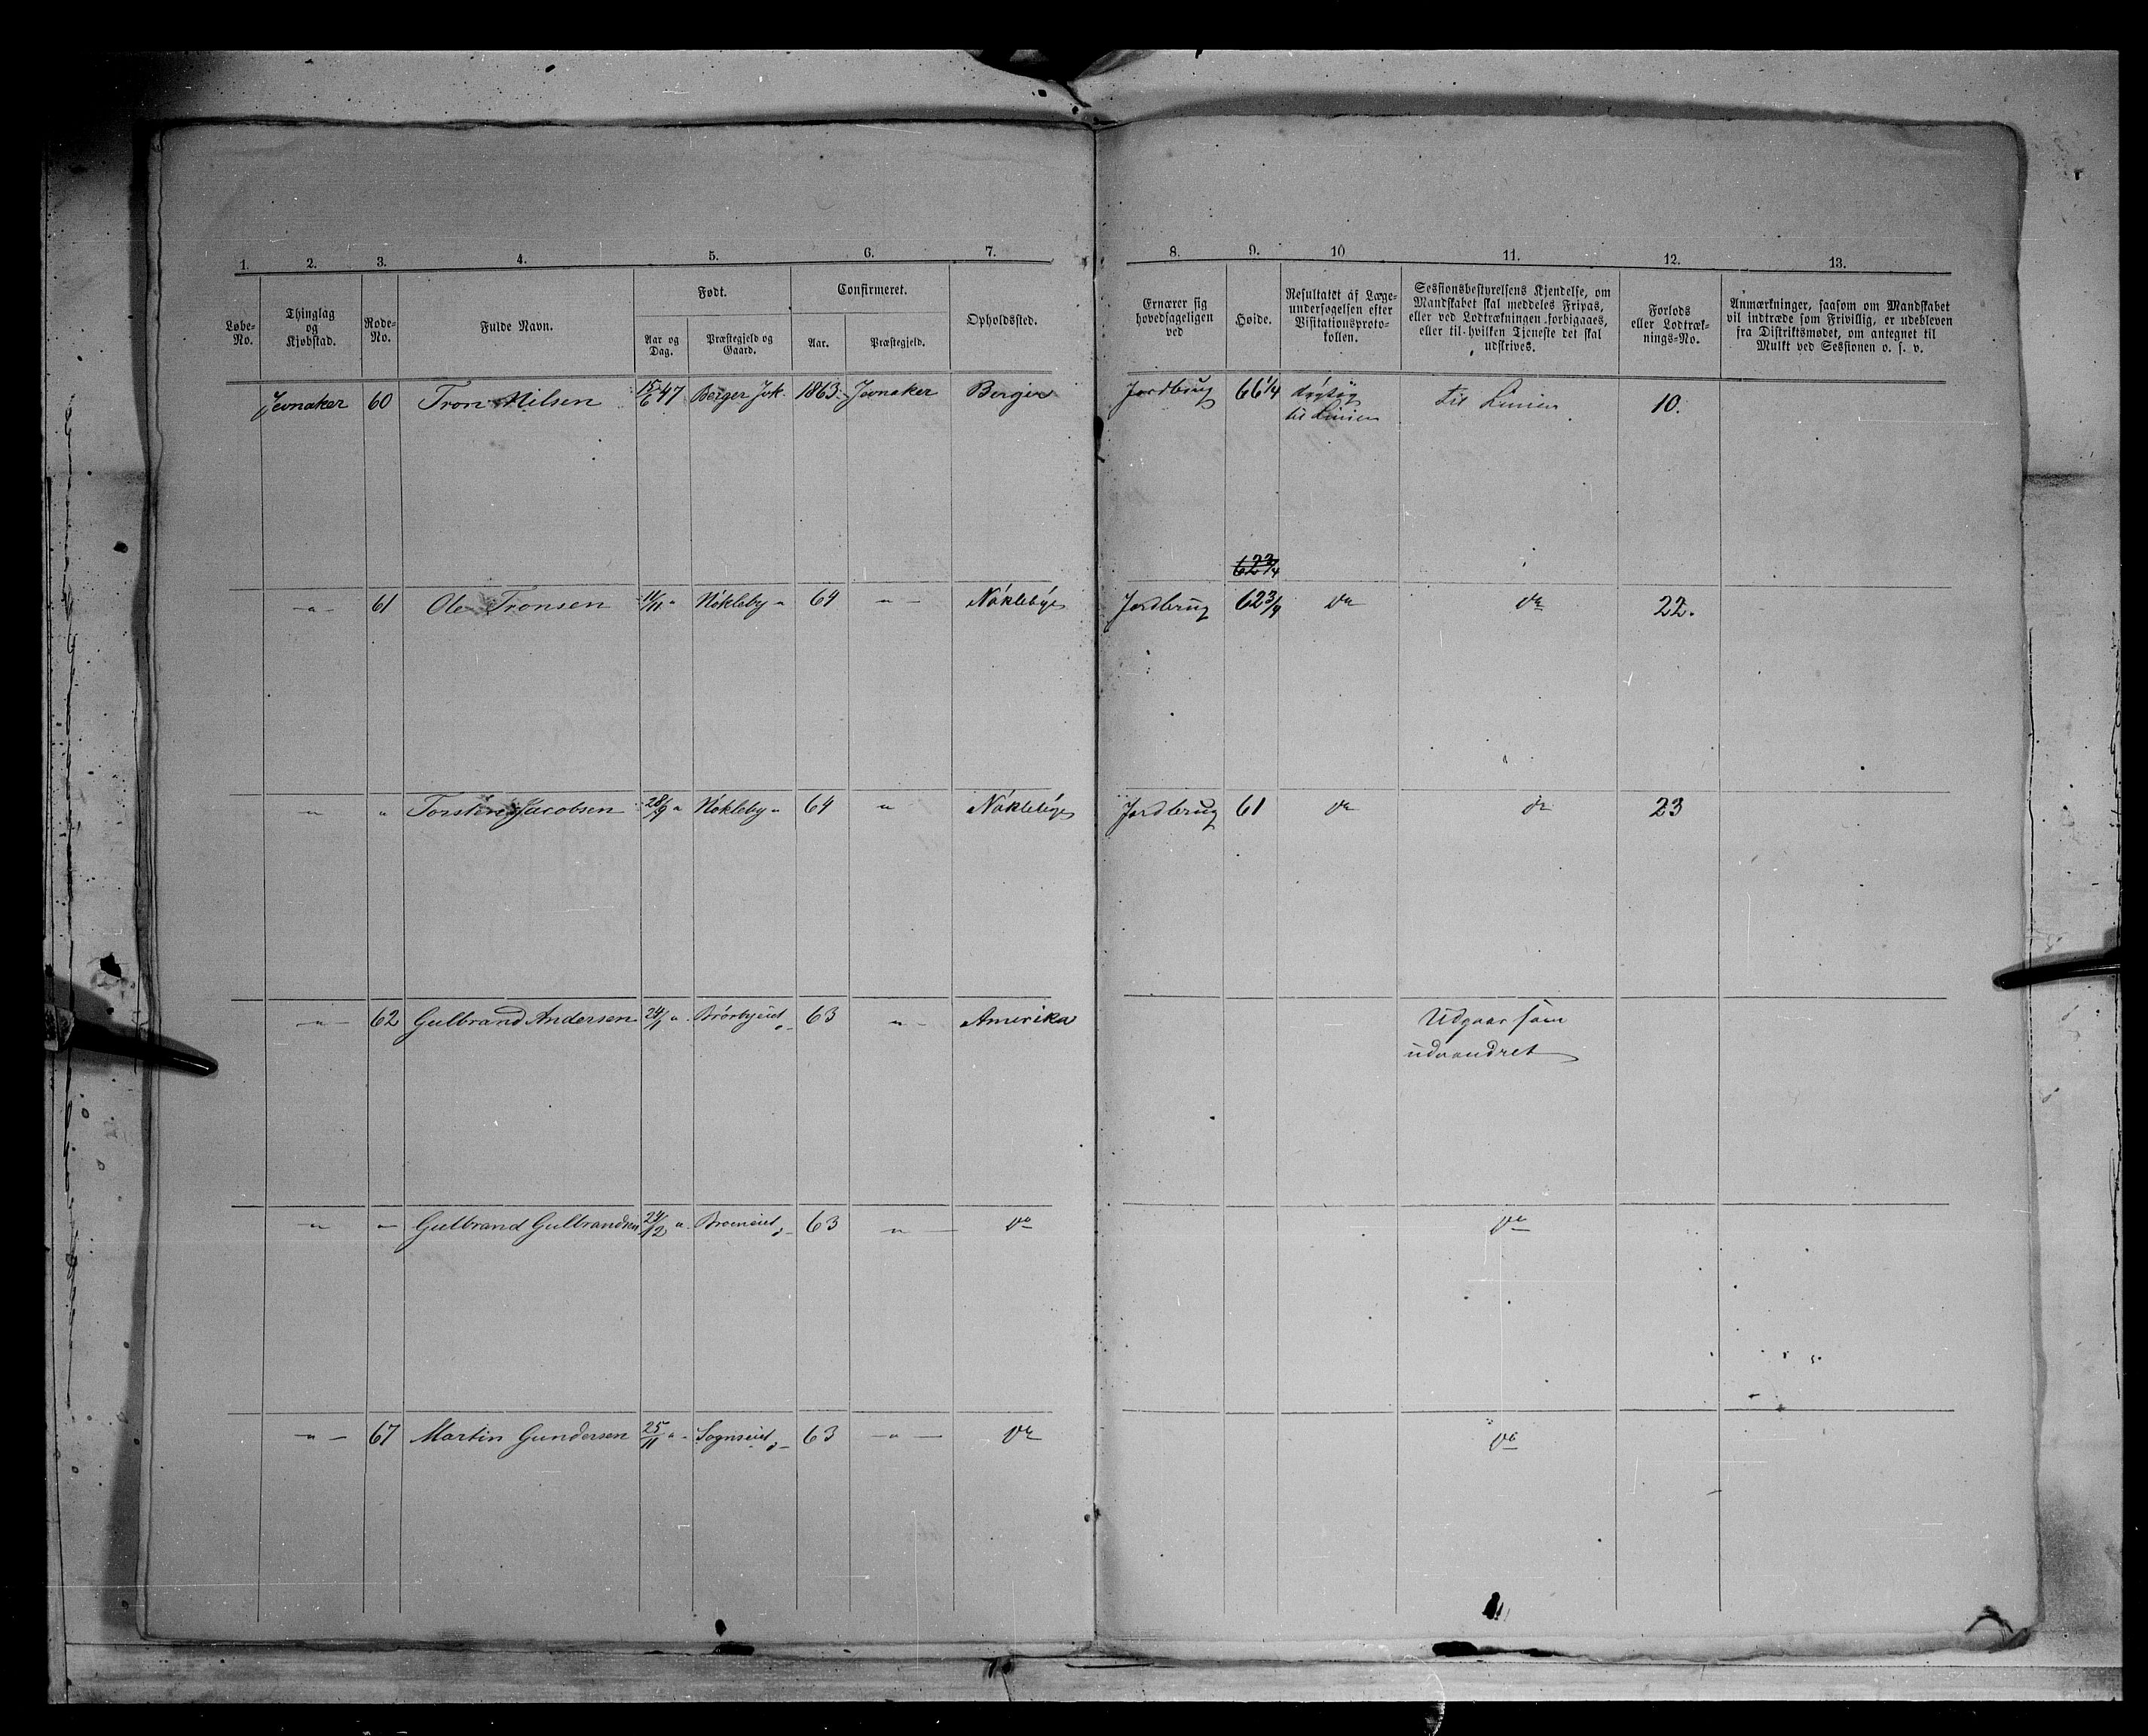 1. 2. 3. 4. 5. 6. 7. 8. 9. 10 11. 12. 13.
Løbe-No.
Thinglag og Kjøbstad.
Rode-No.
Fulde Navn.
Født.
Aar og Dag.
Præstegjeld og Gaard.
Confirmeret.
Aar.
Præstegjeld.
Opholdssted.
Ernærer sig hovedsageligen ved
Høide.
Resultatet af Læge-undersøgelsen efter Visitationsproto-kollen.
Sessionsbestyrelsens Kjendelse, om Mandskabet skal meddeles Fripas, eller ved Lodtrækningen forbigaaes, eller til hvilken Tjeneste det skal udskrives.
Forlods eller Lodtræk-nings-No.
Anmærkninger, saasom om Mandskabet vil indtræde som Frivillig, er udebleven fra Distriktsmødet, om antegnet til Mulkt ved Sessionen o. s. v.
Jevnaker 60 Tron Nilsen 15/6 47 Berger Jvk. 1863 Jevnaker Berger Jordbrug 66 1/4 dygtig til Linien til Linien 10.
62 3/4
-"- 61 Ole Tronsen 11/11 " Nökleby " 64 -"- Nökleby Jordbrug 62 3/4 do do 22.
-"- " Torsten Jacobsen 28/9 " Nökleby " 64 " Nökleby Jordbrug 61 do do 23
-"- 62 Gulbrand Andersen 24/1 " Brörbyeiet 63 -"- Amerika Udgaar som
udvandret
-"- - Gulbrand Gulbrandsen 24/12 " 63 -"- do do
-"- 67 Martin Gundersen 25/11 " Sognseiet 63 -"- do do